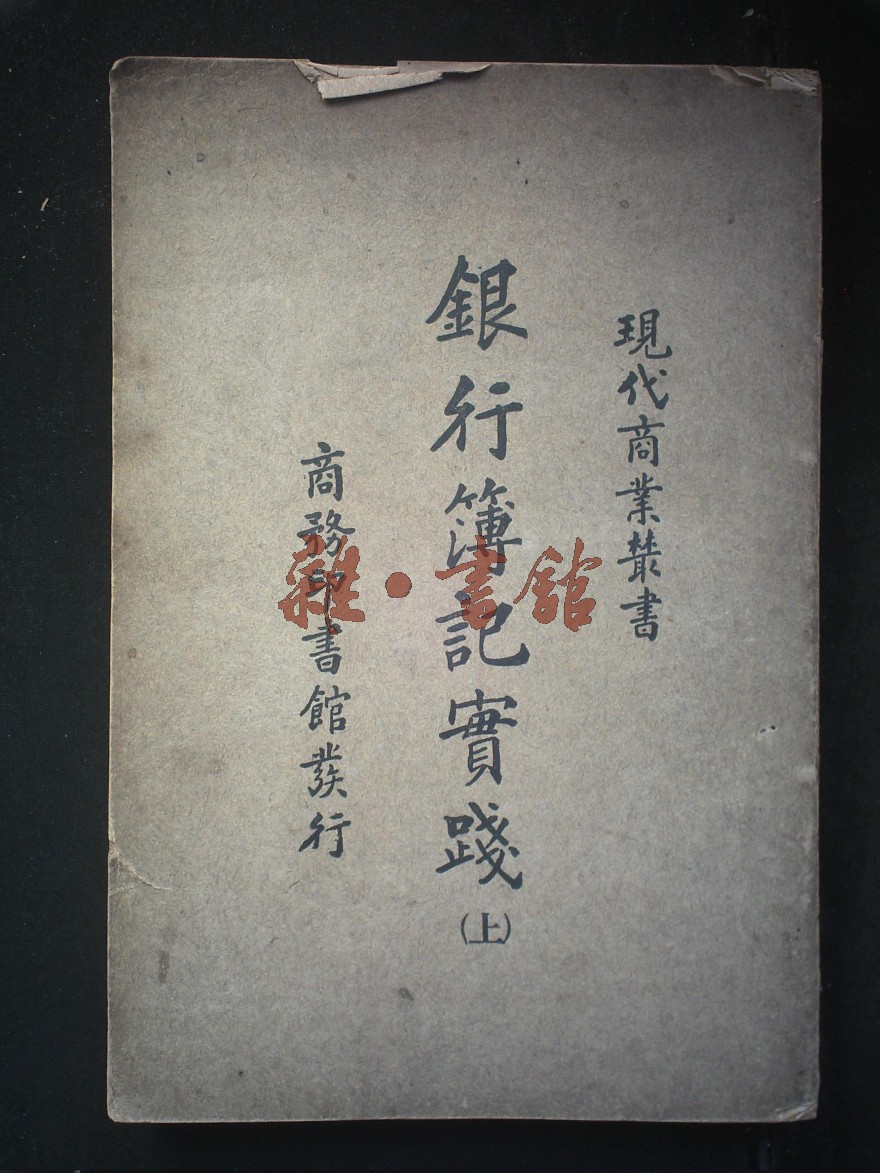 現代商業叢書
銀行簿記實踐
(上)
商務印書館發行
雜·書館